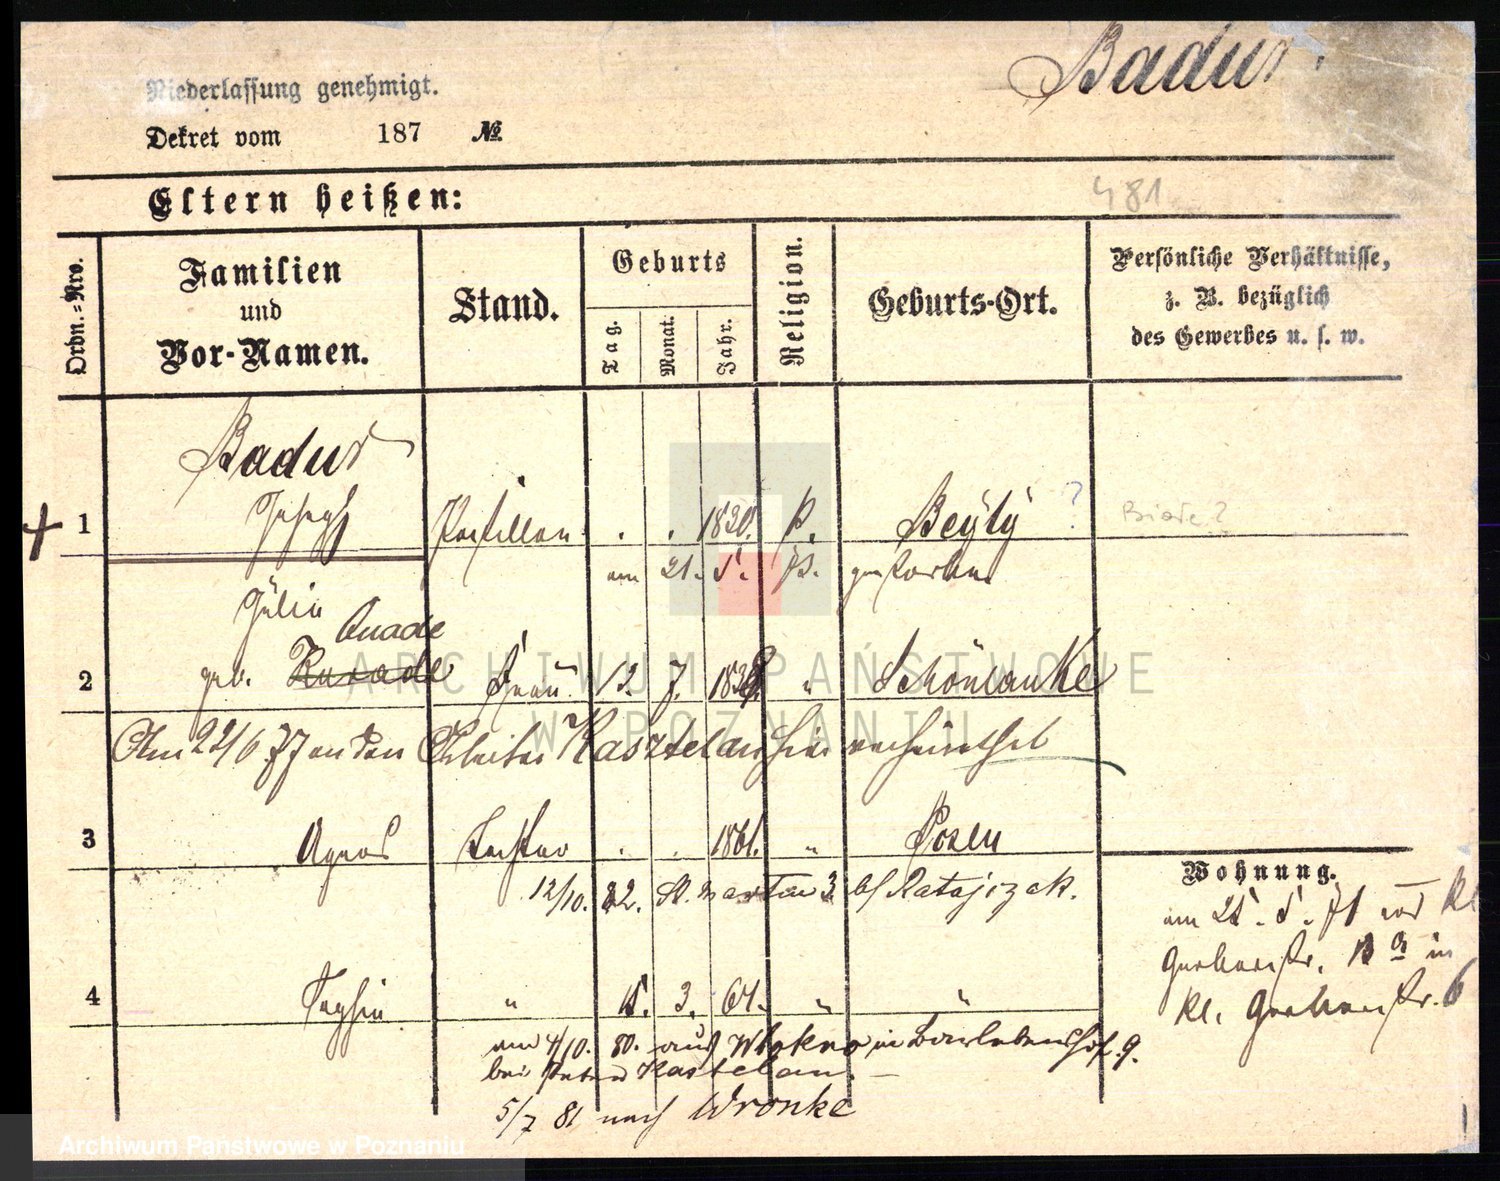 Badur.
Niederlassung genehmigt.
Dekret vom 187 №
Eltern heißen:
481
Ordn.-Nro.
Familien und Vor-Namen.
Stand.
Geburts
Tag.
Monat.
Jahr.
Religion.
Geburts-Ort.
Persönliche Verhältnisse,
z. B. bezüglich
des Gewerbes u. s. w.
Badur
1 Joseph . . 1830. k. ?
am 21. 5. gestorben
Julie
Quade
2 geb. Frau 12. 7. " Schönlanke
Am 22/6 77 an den Arbeiter Kasztelan hier verheirathet
3 Agnes Tochter . . 1861. " Posen
12/10. 82. St. Martin 3. b/ Ratajczak.
Wohnung.
am 25. 5. 71 von Kl
Gerberstr. in
Kl. Gerberstr. 6
4 Sophie " 15. 3. 64. " "
am 4/10. 80. aus Wlokno in Bardelebenshof. 9.
bei Kastelan.
5/7 81 nach Wronke
ARCHIWUM PAŃSTWOWE
W POZNANIU
Archiwum Państwowe w Poznaniu